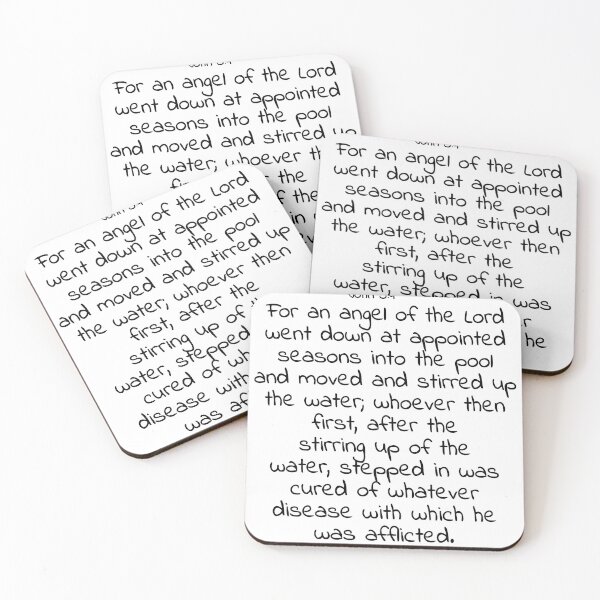 For an angel of the Lord
went down at appointed
seasons into the pool
and moved and stirred up
the water; whoever
the
For an angel of the Lord
went down at appointed
seasons into the pool
and moved and stirred up
the water; whoever then
first, after the
stirring up of the
water, stepped in was
he
For an angel of the Lord
went down at appointed
seasons into the pool
and moved and stirred up
the water; whoever then
first, after the
stirring up of
water, stepped
cured of
disease with
was
For an angel of the Lord
went down at appointed
seasons into the pool
and moved and stirred up
the water; whoever then
first, after the
stirring up of the
water, stepped in was
cured of whatever
disease with which he
was afflicted.